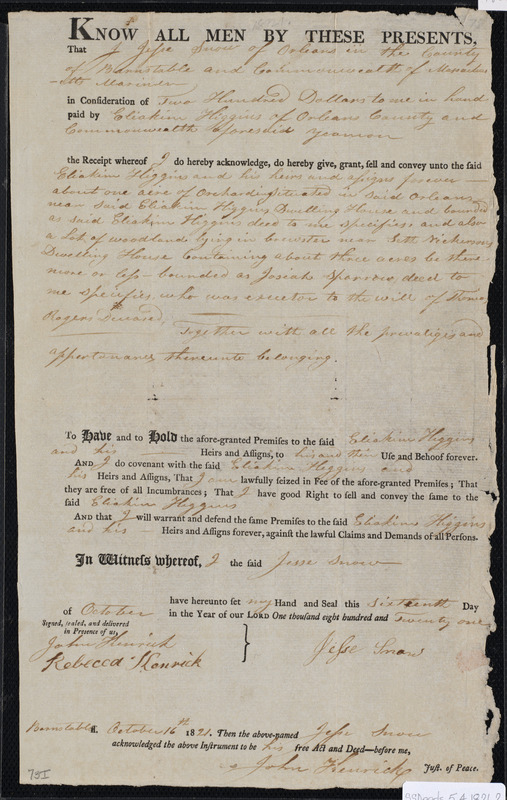 KNOW ALL MEN BY THESE PRESENTS,
That I Jesse Snow of Orleans in the County
of Barnstable and Commonwealth of Massachus
-etts Mariner
in Consideration of Two Hundred Dollars to me in hand
paid by Eliakim Higgins of Orleans County and
Commonwealth aforesaid yeamon
the Receipt whereof I do hereby acknowledge, do hereby give, grant, sell and convey unto the said
Eliakim Higgins and his heirs and assigns forever
about one acre of Orchard situated in said Orleans
near said Eliakim Higgins Dwelling House and bounded
as said Eliakim Higgins deed to me specifiess and also
a Lot of woodland lying in brewster near Seth Nickersons
Dwelling House Containing about three acres be there
more or less - bounded as Josiah Sparrow deed to
me specifies, who was executor to the will of Thomas
Rogers Deceased
Together with all the privaliges and
appertanances thereunto belonging.
To Have and to Hold the afore-granted Premises to the said Eliakim Higgins
and his Heirs and Assigns, to his and their Use and Behoof forever.
AND I do covenant with the said Eliakim Higgins and
his Heirs and Assigns, That I am lawfully seized in Fee of the afore-granted Premises; That
they are free of all Incumbrances; That I have good Right to sell and convey the same to the
said Eliakim Higgins
And that I will warrant and defend the same Premises to the said Eliakim Higgins
and his Heirs and Assigns forever, against the lawful Claims and Demands of all Persons.
In Witness whereof, I the said Jesse Snow
have hereunto set my Hand and Seal this Sixteenth Day
of October in the Year of our LORD One thousand eight hundred and Twenty one
Signed, sealed, and delivered
in Presence of us,
John Kenrick
Rebecca Kenrick
Jesse Snow
Barnstable ss. October 16th 1821. Then the above-named Jesse Snow
acknowledged the above Instrument to be his free Act and Deed—before me,
John Kenrick Just. of Peace.